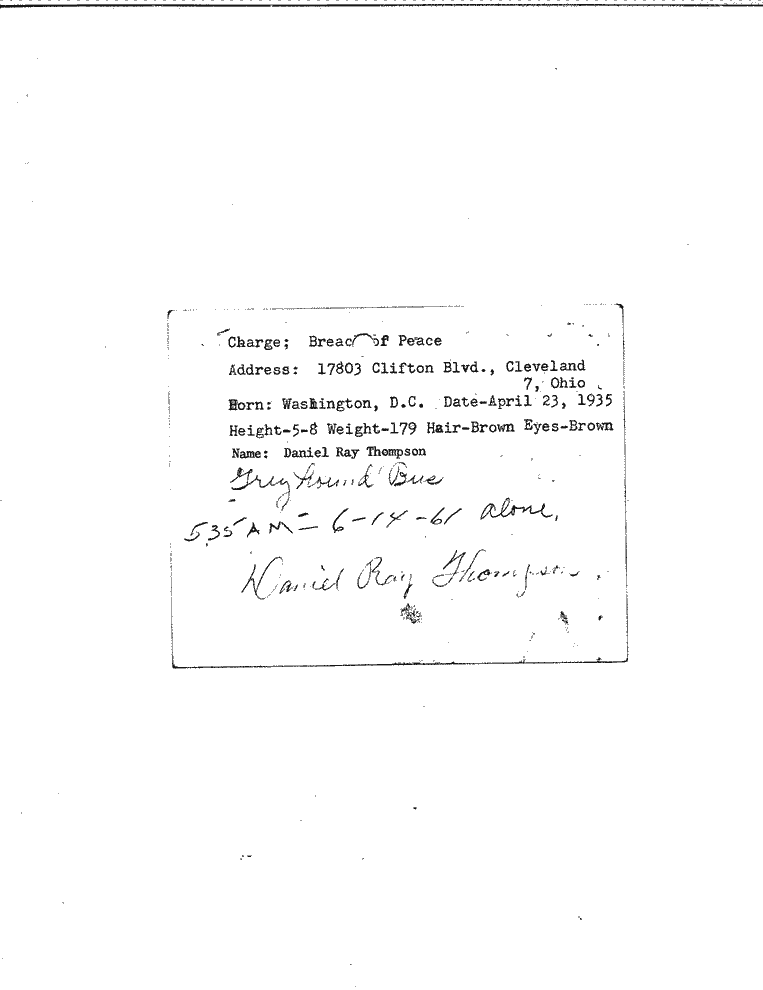 Charge; Breach of Peace
Address: 17803 Clifton Blvd., Cleveland
7, Ohio
Born: Washington, D.C. Date-April 23, 1935
Height-5-8 Weight-179 Hair-Brown Eyes-Brown
Name: Daniel Ray Thompson
Greyhound Bus
535 AM - 6-14-61 alone,
Daniel Ray Thompson.